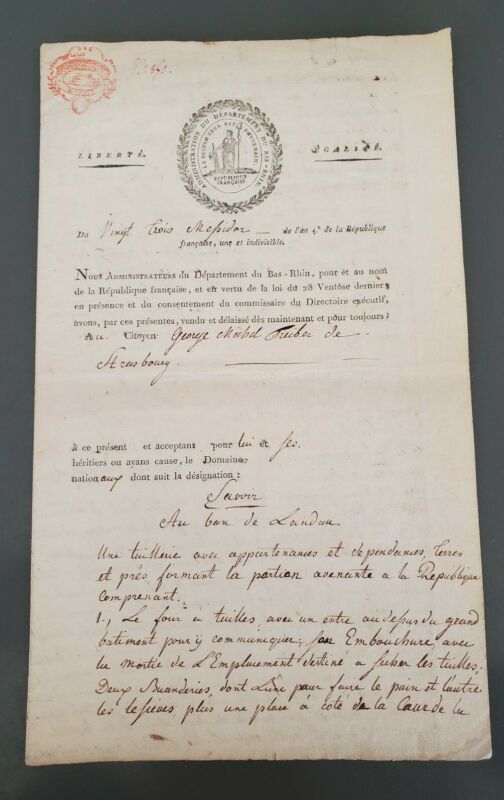 ADMINISTRATION DU DÉPARTEMENT DU BAS-RHIN.
LE PEUPLE SEUL EST SOUVERAIN.
RÉPUBLIQUE
FRANÇAISE.
LIBERTÉ.
ÉGALITÉ.
Du Vingt trois Messidor de l'an 4.e de la République
française, une et indivisible.
NOUS ADMINISTRATEURS du Département du Bas-Rhin, pour et au nom
de la République française, et en vertu de la loi du 28 Ventôse dernier,
en présence et du consentement du commissaire du Directoire exécutif,
avons, par ces présentes, vendu et délaissé dès maintenant et pour toujours;
Au Citoyen George Michel Treiber de
Strasbourg.
à ce présent et acceptant pour lui et ses
héritiers ou ayans cause, le Domaines
nationaux dont suit la désignation:
Savoir
Au ban de Landau
Une tuillerie avec appartenances et dependances, terres
et prés, formant la portion avenante a la République
comprenant.
1., Le four a tuilles, avec un entre au dessus du grand
batiment pour y communiquer, son Embouchure avec
la moitie de L'Emplacement destiné a secher les tuilles.
Deux Buanderies, dont L'une pour faire le pain et l'autre
les lessives, plus une place à coté de la Cour de la